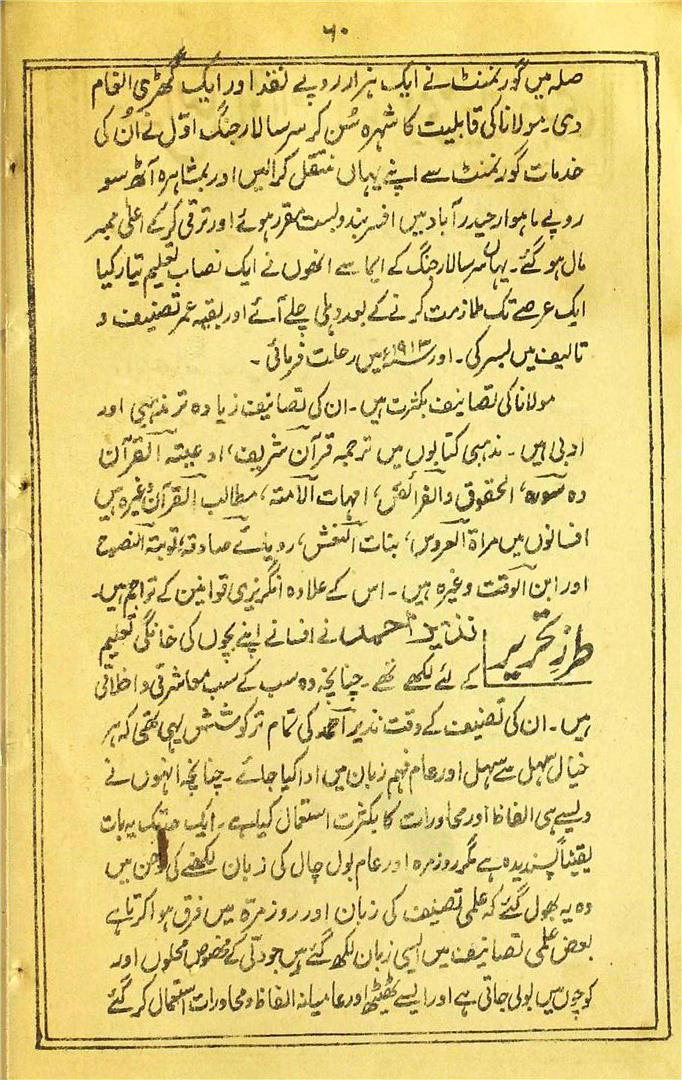 ۶۰
صلہ میں گورنمنٹ نے ایک ہزار روپے نقد اور ایک گھڑی انعام
دی۔ مولانا کی قابلیت کا شہرہ سُن کر سر سالار جنگ اوّل نے اُن کی
خدمات گورنمنٹ سے اپنے یہاں منتقل کرالیں اور بمشاہرہ آٹھ سو
روپے ماہوار حیدر آباد میں افسر بندوبست مقرر ہوئے اور ترقی کرکے اعلیٰ ممبر
مال ہو گئے۔ یہاں سر سالار جنگ کے ایما سے انھوں نے ایک نصاب تعلیم تیار کیا
ایک عرصے تک ملازمت کرنے کے بعد دہلی چلے آئے اور بقیہ عمر تصنیف و
تالیف میں بسر کی۔ اور سنہ ۱۹۱۳ء میں رحلت فرمائی۔
مولانا کی تصانیف بکثرت ہیں۔ ان کی تصانیف زیادہ تر مذہبی اور
ادبی ہیں۔ مذہبی کتابوں میں ترجمہ قرآن شریف، ادعیتہ القرآن
دہ سورہ، الحقوق والفرائض، امہات الامتہ، مطالب القرآن وغیرہ ہیں
افسانوں میں مراۃ العروس، بنات النعش، رویائے صادقہ، توبتہ النصوح
اور ابن الوقت وغیرہ ہیں۔ اس کے علاوہ انگریزی قوانین کے تراجم ہیں۔
طرزِ تحریر نذیر احمد نے افسانے اپنے بچوں کی خانگی تعلیم
کے لئے لکھے تھے۔ چنانچہ وہ سب کے سب معاشرتی و اخلاقی
ہیں۔ ان کی تصنیف کے وقت نذیر احمد کی تمام تر کوشش یہی تھی کہ ہر
خیال سہل سے سہل اور عام فہم زبان میں ادا کیا جائے۔ چنانچہ انہوں نے
ویسے ہی الفاظ اور محاورات کا بکثرت استعمال کیا ہے۔ ایک حد تک یہ بات
یقیناً پسندیدہ ہے مگر روزمرہ اور عام بول چال کی زبان لکھنے کی دھن میں
وہ یہ بھول گئے کہ علمی تصنیف کی زبان اور روزمرّہ میں فرق ہوا کرتا ہے
بعض علمی تصانیف میں ایسی زبان لکھ گئے ہیں جو دلّی کے مخصوص محلوں اور
کوچوں میں بولی جاتی ہے اور ایسے ٹھیٹھ اور عامیانہ الفاظ و محاورات استعمال کر گئے